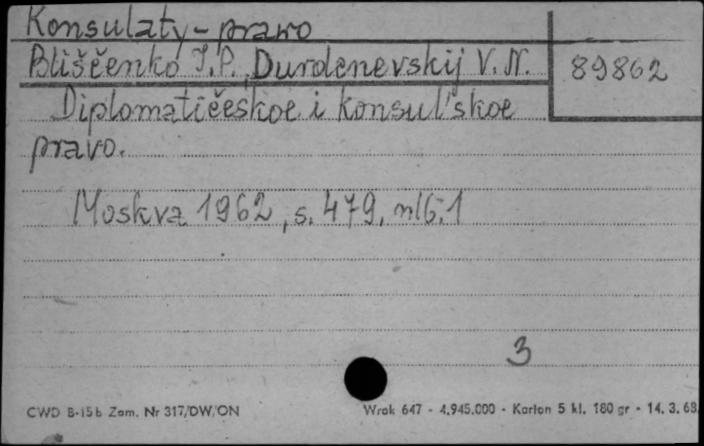 Konsulaty - prawo
Bliščenko I.P., Durdenevskij V.N. 89862
Diplomatičeskoe i konsul'skoe
pravo.
Moskva 1962, s. 479,
3
CWD B-15b Zam. Nr 317/DW/ON Wrak 647 - 4.945.000 - Karton 5 kl. 180 gr - 14. 3. 68